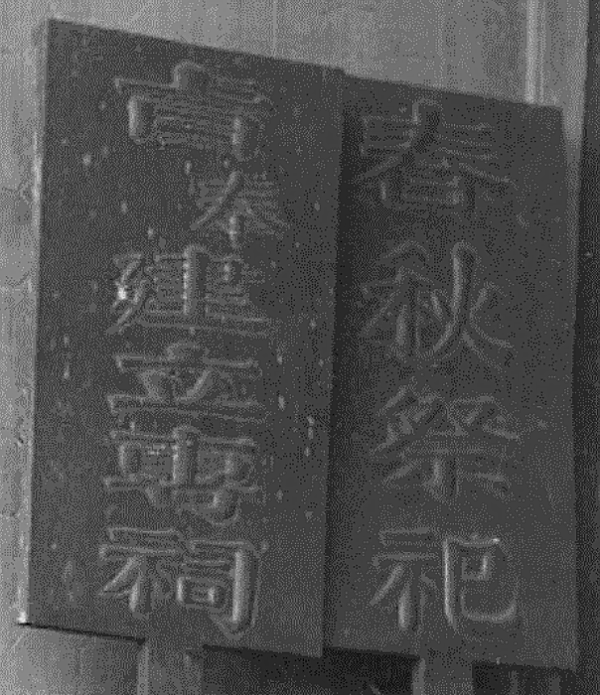 春秋祭祀
奉旨建立專祠